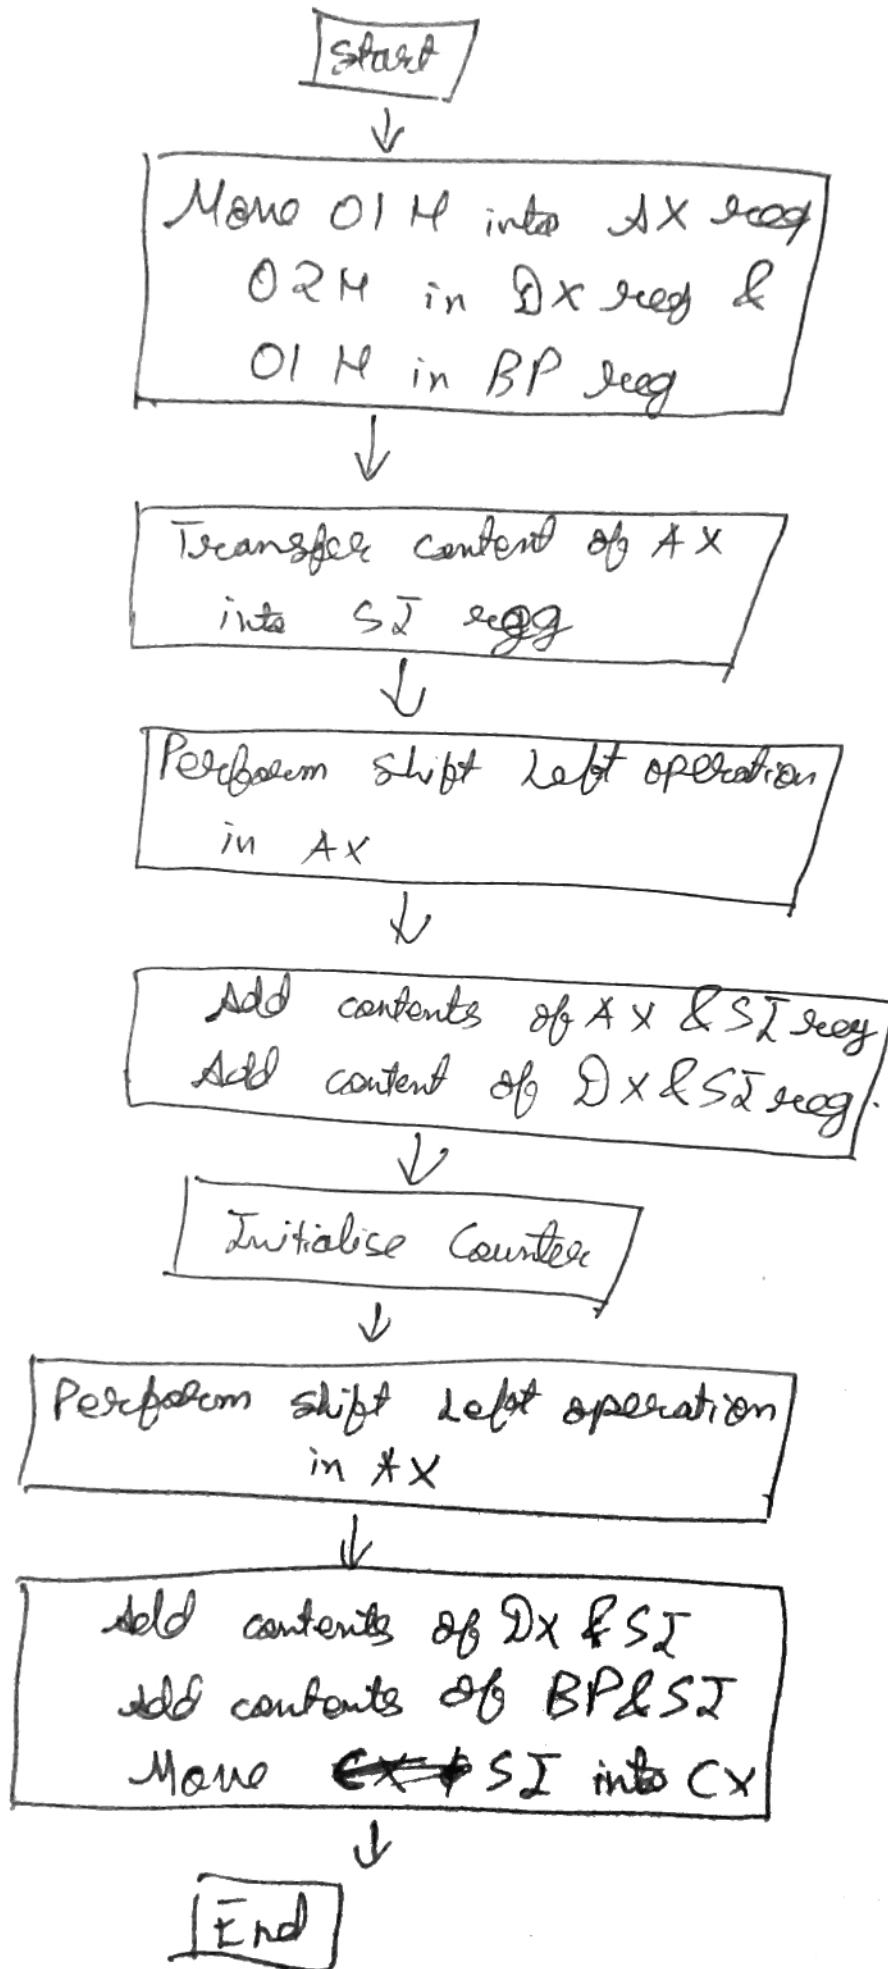 Start
Move 01 H into AX reg
02H in DX reg &
01 H in BP reg
Transfer content of AX
into SI regg
Perform Shift Left operation
in AX
Add contents of AX & SI reg
Add content of DX & SI reg.
Initialise Counter
Perform Shift Left operation
in AX
Add contents of DX & SI
Add contents of BP & SI
Move SI into CX
End